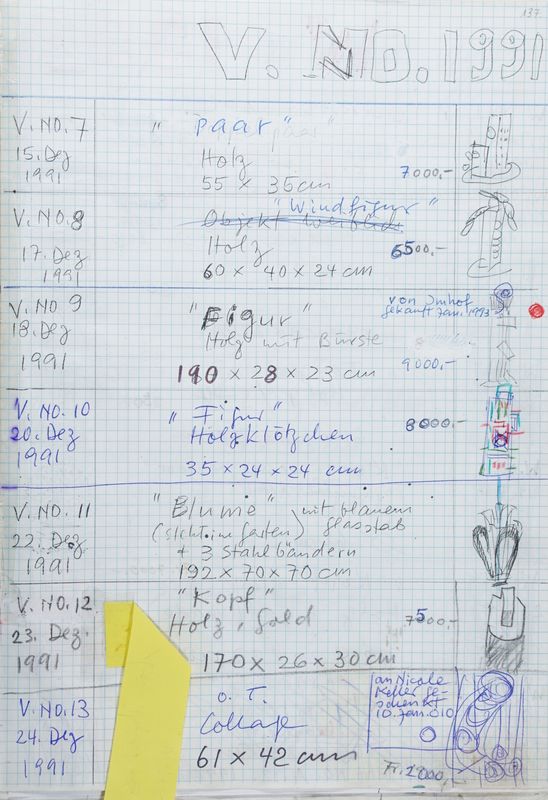 137
V. NO. 1991
V. NO. 7
15. Dez
1991
"paar"
Holz
55 x 35 cm
7000.-
V. NO. 8
17. Dez
1991
"Windfigur"
Objekt
Holz
60 x 40 x 24 cm
6500.-
V. NO 9
18. Dez
1991
"Figur"
Holz mit Bürste
190 x 28 x 23 cm
von Imhof
gekauft Jan. 1993
9000.-
V. NO. 10
20. Dez
1991
"Figur"
Holzklötzchen
35 x 24 x 24 cm
8000.-
V. NO. 11
22. Dez
1991
"Blume" mit blauem
(steht im Garten) glasstab
+ 3 Stahlbändern
192 x 70 x 70 cm
V. NO. 12
23. Dez.
1991
"Kopf"
Holz, Gold
170 x 26 x 30 cm
7500.-
V. NO. 13
24. Dez
1991
o. T.
Collage
61 x 42 cm
an Nicole
Keller ge-
schenkt
10. Jan. 010
Fr. 2000.-